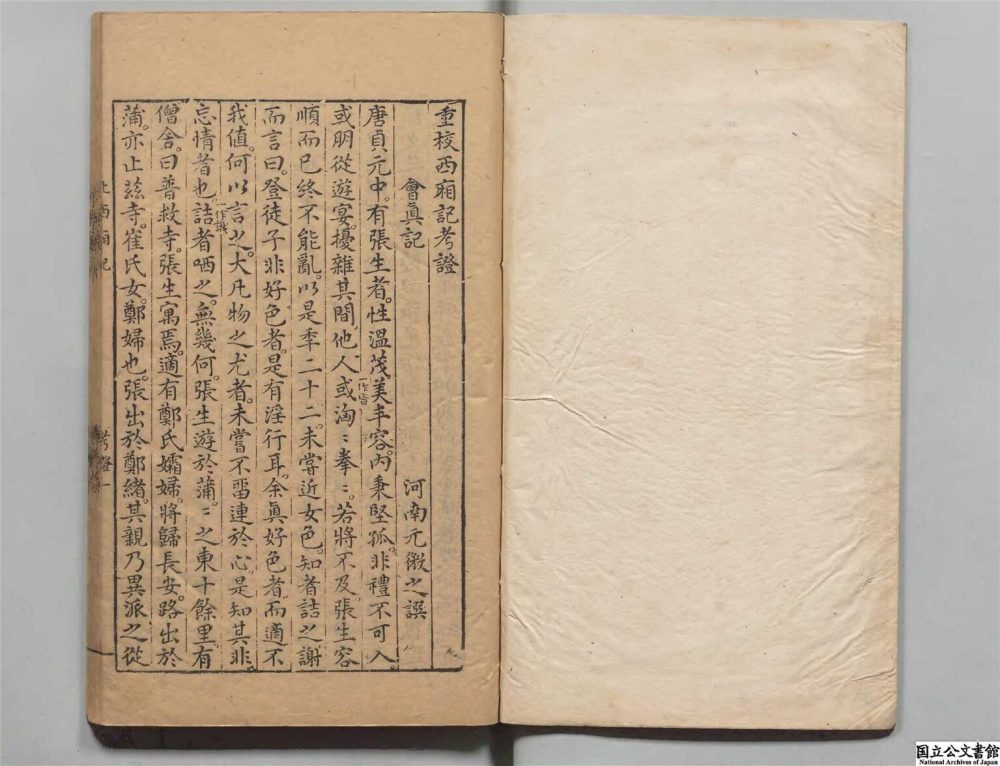 重校西廂記考證
會眞記
河南元微之譔
唐貞元中。有張生者。性溫茂美丰容。内秉堅孤。非禮不可入
或朋從遊宴。擾雜其間。他人或一作皆洶〻拳〻。若將不及。張生容
順而已終不能亂。以是季二十二。未甞近女色。知者詰之謝
而言曰。登徒子非好色者。是有淫行耳。余眞好色者。而適不
我值。何以一作誠言之。大凡物之尤者。未嘗不畱連於心。是知其非
忘情者也。詰者哂之。無幾何。張生遊於蒲。〻之東十餘里。有
僧舍。曰普救寺。張生寓焉。適有鄭氏孀婦。將歸長安。路出於
蒲。亦止茲寺。崔氏女。鄭婦也。張出於鄭緒。其親乃異派之從
北西廂記
考證
一
国立公文書館
National Archives of Japan